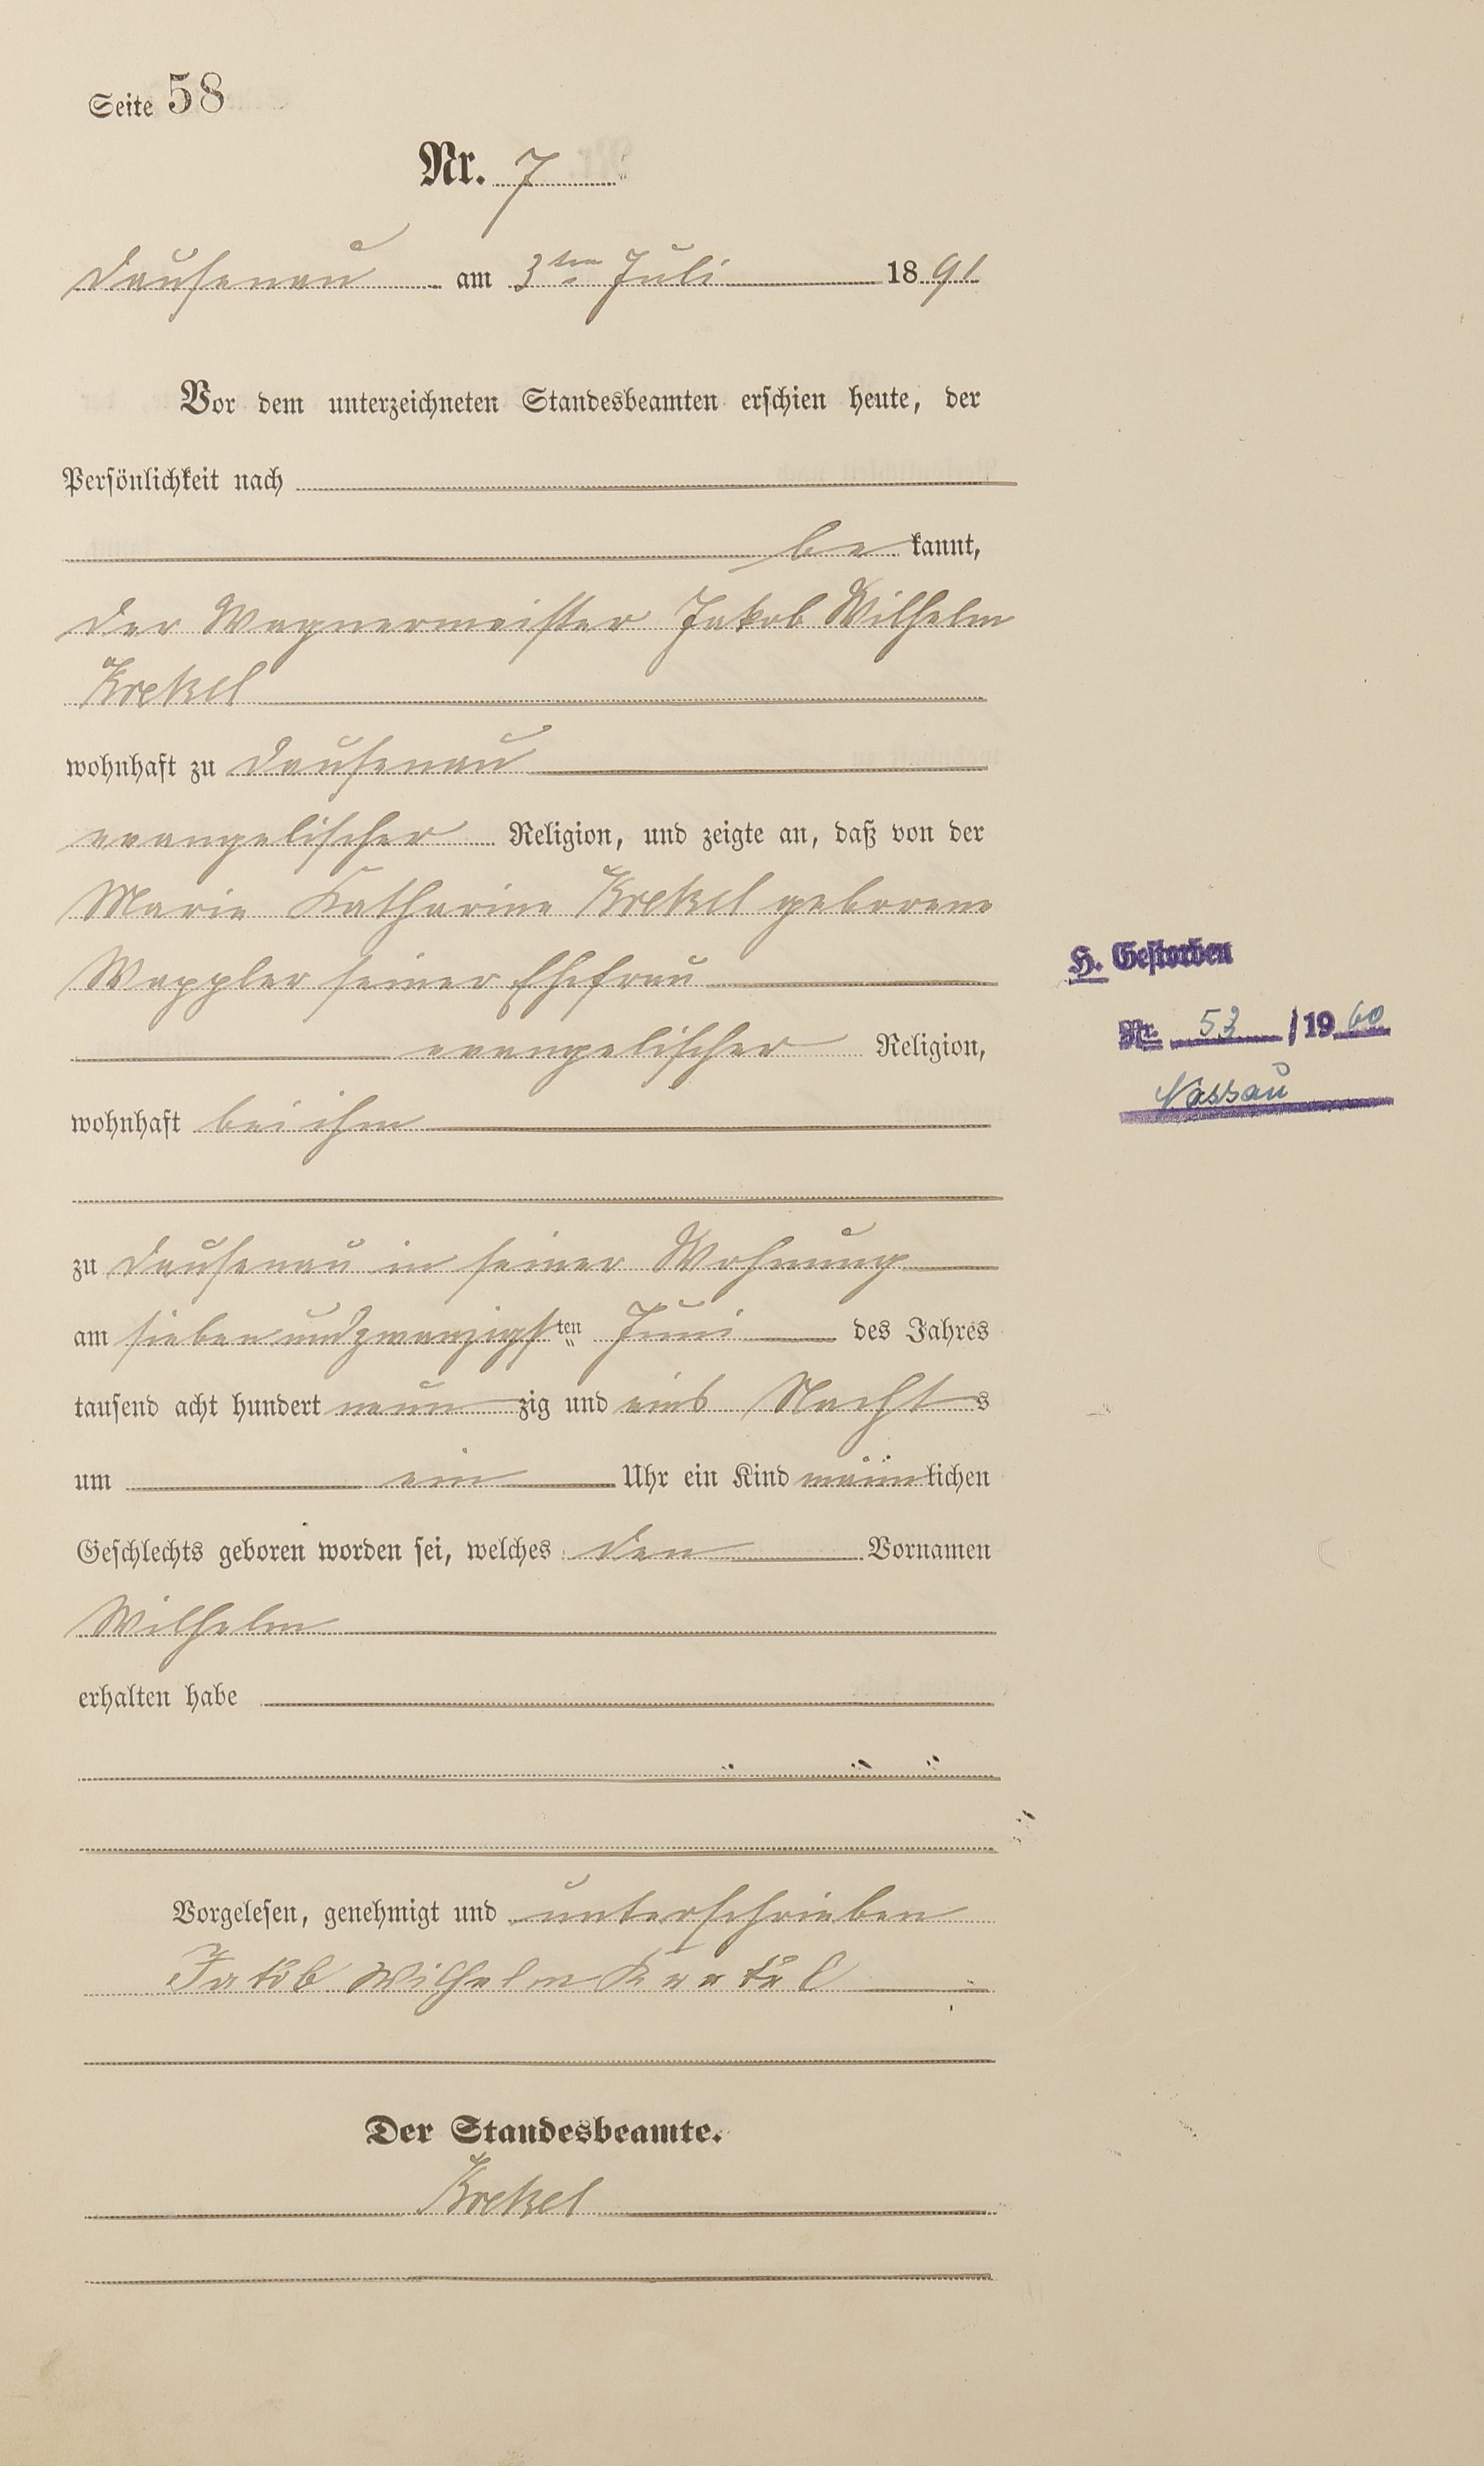 Seite 58
Nr. 7
Dausenau am 3ten Juli 1891
Vor dem unterzeichneten Standesbeamten erschien heute, der
Persönlichkeit nach
be kannt,
der Wagnermeister Jakob Wilhelm
Krekel
wohnhaft zu Dausenau
evangelischer Religion, und zeigte an, daß von der
Marie Katharine Krekel geborene
Wappler seiner Ehefrau
evangelischer Religion,
wohnhaft bei ihm
zu Dausenau in seiner Wohnung
am siebenundzwanzigsten Juni des Jahres
tausend acht hundert neunzig und eins Nachts
um ein Uhr ein Kind männlichen
Geschlechts geboren worden sei, welches den Vornamen
Wilhelm
erhalten habe
Vorgelesen, genehmigt und unterschrieben
Jakob Wilhelm Krekel
Der Standesbeamte.
Krekel
H. Gestorben
Nr. 53 / 1960
Nassau